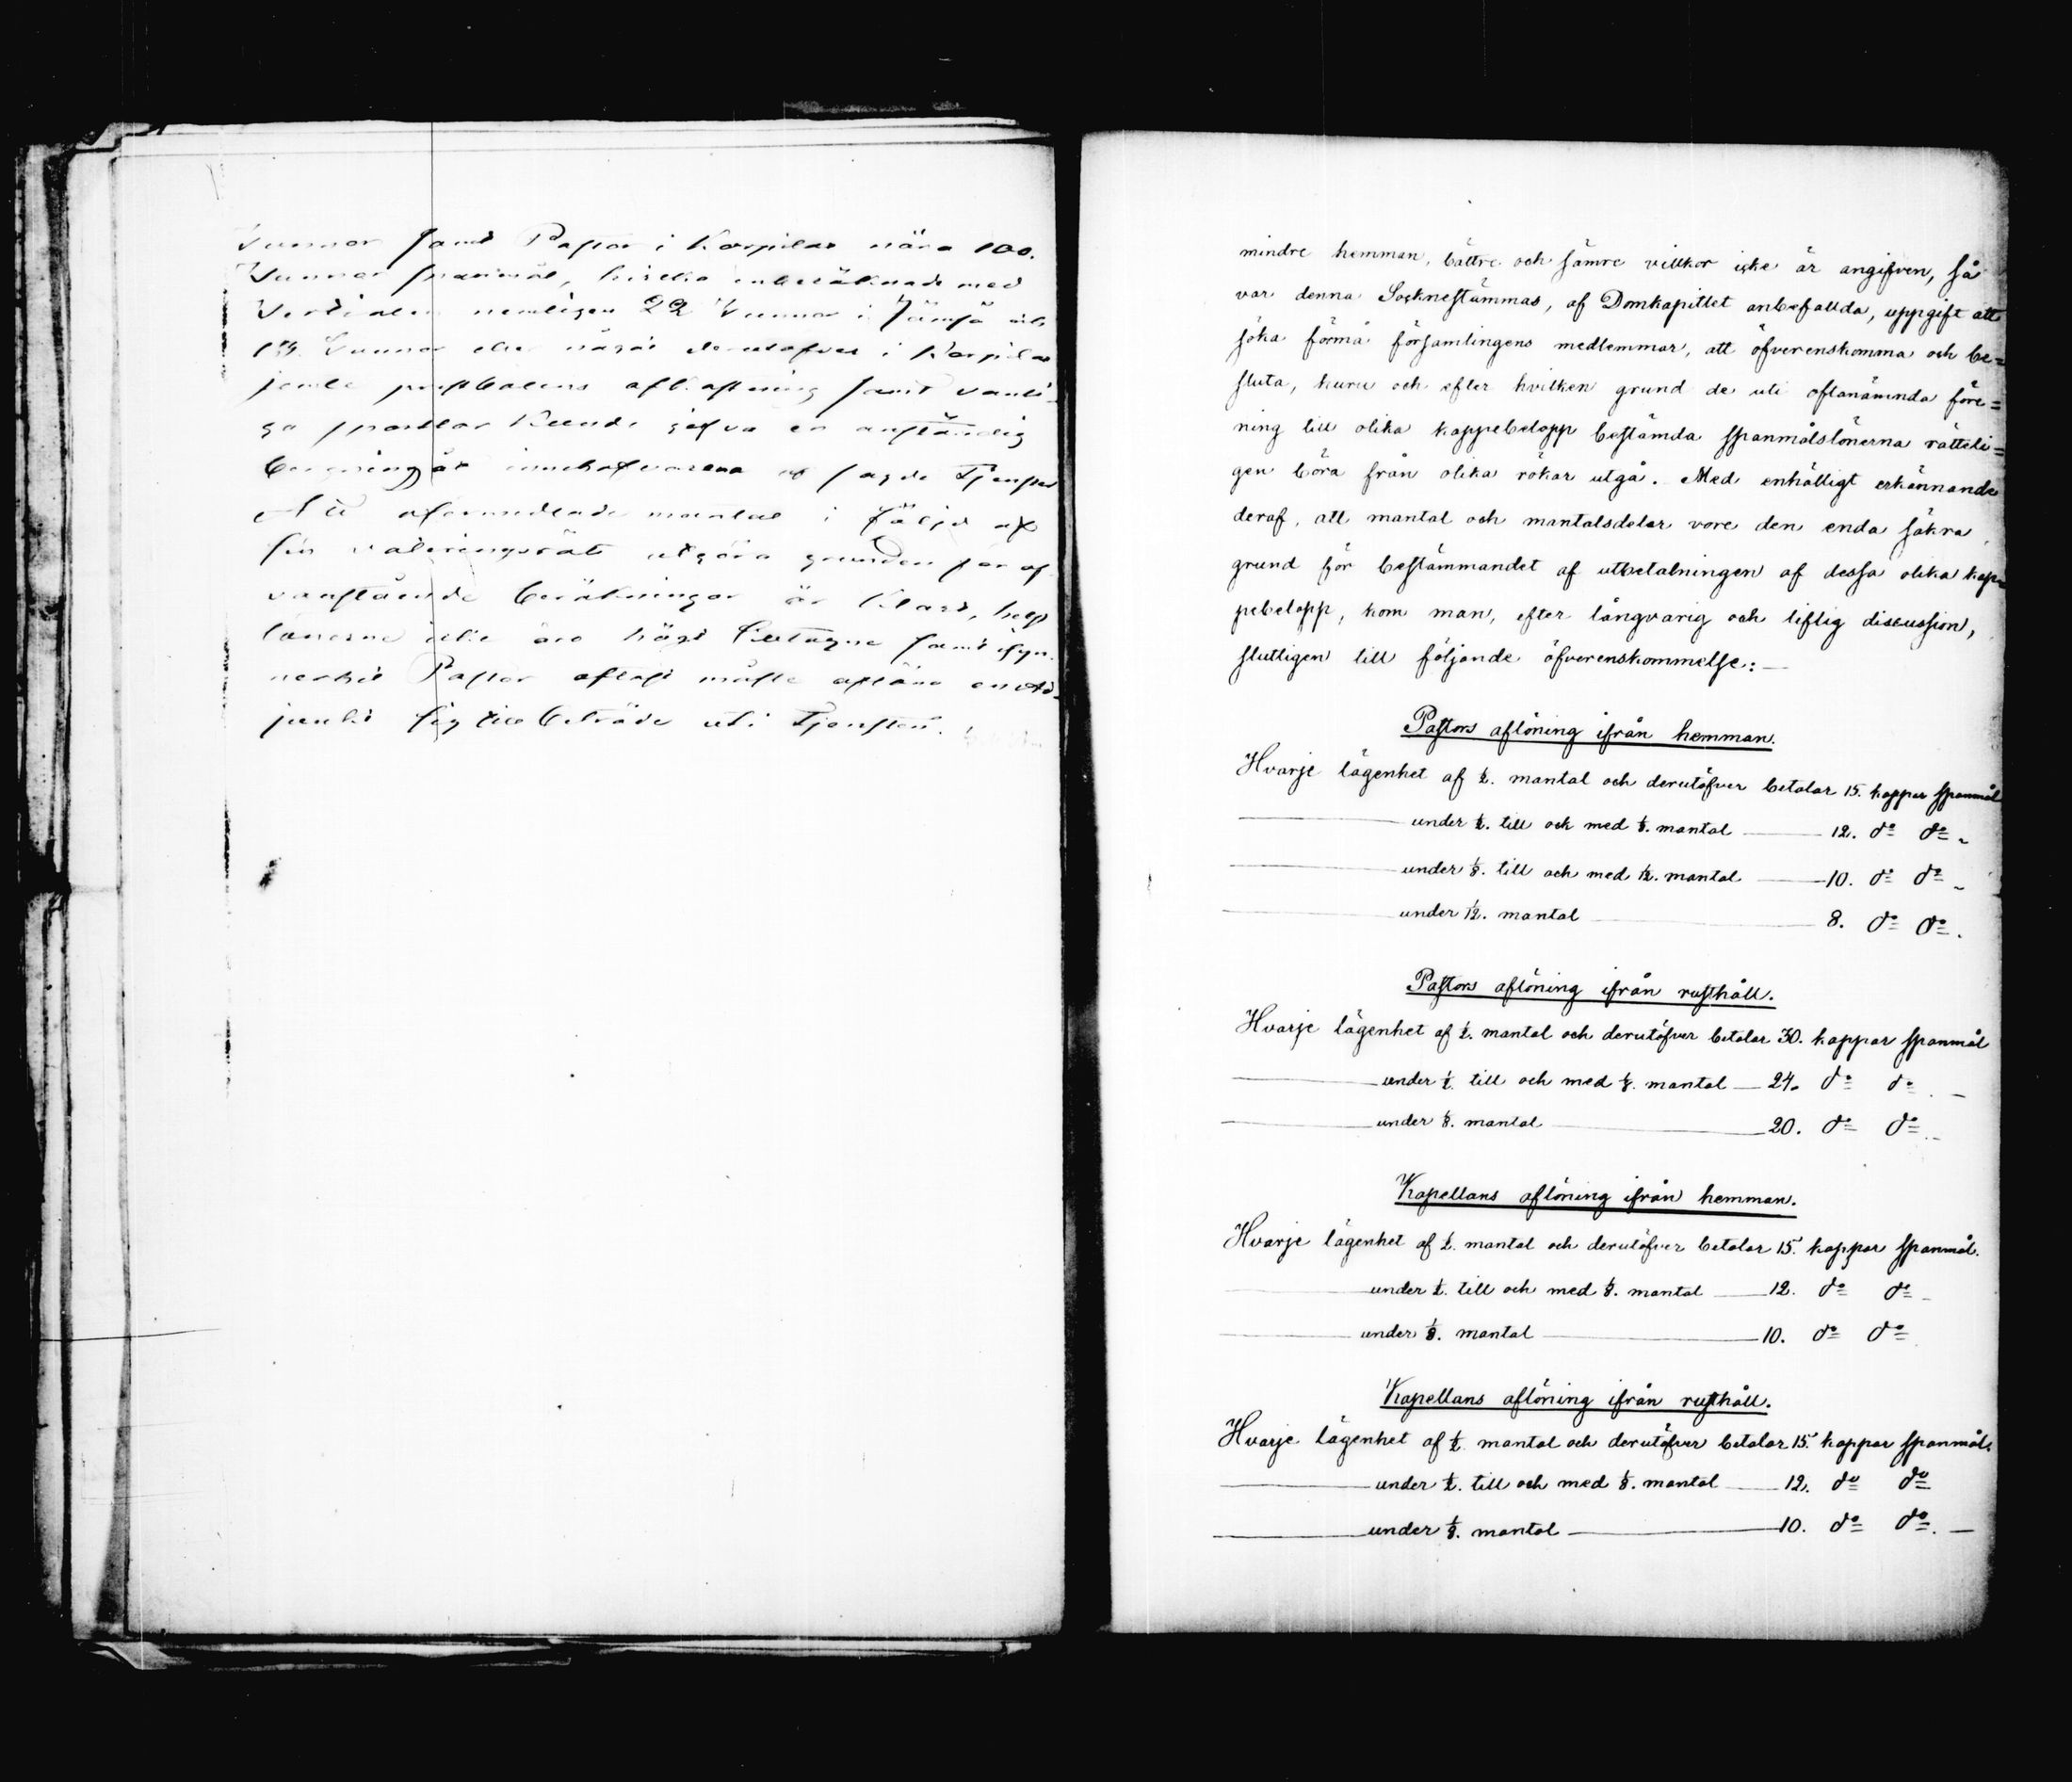 Tunnor samt Pastor i Korpilax nära 100.
Tunnor spanmål, hvilka inberäknade med
nemligen 22 Tunnor i Jämsä
Tunnor eller något derutöfver i Korpilax
jemte prestbolens afkastning samt vanli-
ga kunde gifva en anständig
bergning åt innehafvarena af sagde Tjenster
Att oförmedlade mantal i följd af
sin utgöra grunden för of-
vanstående beräkningar är klart, helst
lönerne icke äro högt tilltagne samt
Pastor oftast måste aflöna en Ad-
junkt sig till beträde uti Tjensten.
mindre hemman, bättre och sämre villkor icke är angifven, så
var denna Socknestämmas, af Domkapitlet anbefallda, uppgift att
söka förmå församlingens medlemmar, att öfverenskomma och be=
sluta, huru och efter hvilken grund de uti oftanämnda före=
ning till olika kappebelopp bestämda spanmålslönerna rätteli=
gen böra från olika rökar utgå. Med enhälligt erkännande
deraf, att mantal och mantalsdelar vore den enda säkra
grund för bestämmandet af utbetalningen af dessa olika kap=
pebelopp, kom man, efter långvarig och liflig discussion,
slutligen till följande öfverenskommelse: —
Pastors aflöning ifrån hemman.
Hvarje lägenhet af ½. mantal och derutöfver betalar 15. kappar spanmål
under ½. till och med ⅛. mantal — 12. do do
under ⅛. till och med 1/12. mantal — 10. do do
under 1/12. mantal — 8. do do.
Pastors aflöning ifrån rusthåll.
Hvarje lägenhet af ½. mantal och derutöfver betalar 30. kappar spanmål
under ½. till och med ⅛. mantal — 24. do do
under ⅛. mantal — 20. do do
Kapellans aflöning ifrån hemman.
Hvarje lägenhet af ½. mantal och derutöfver betalar 15. kappar spanmål.
under ½. till och med ⅛. mantal — 12. do do
under ⅛. mantal — 10. do do
Kapellans aflöning ifrån rusthåll.
Hvarje lägenhet af ½ mantal och derutöfver betalar 15. kappar spanmål.
under ½. till och med ⅛. mantal — 12. do do
under ⅛. mantal — 10. do do. —